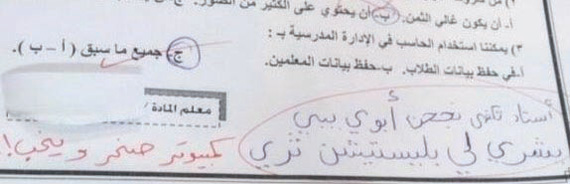 أ. أن يكون غالي الثمن. ب) أن يحتوي على الكثير من الصور.
٣) يمكننا استخدام الحاسب في الإدارة المدرسية بـ :
أ-في حفظ بيانات الطلاب. ب-حفظ بيانات المعلمين. ج- جميع ما سبق ( أ – ب ).
معلم المادة /
أستاذ تكفى نجحني أبوي يبي
يشتري لي بليستيشن ثري
كمبيوتر صخر و يخب!